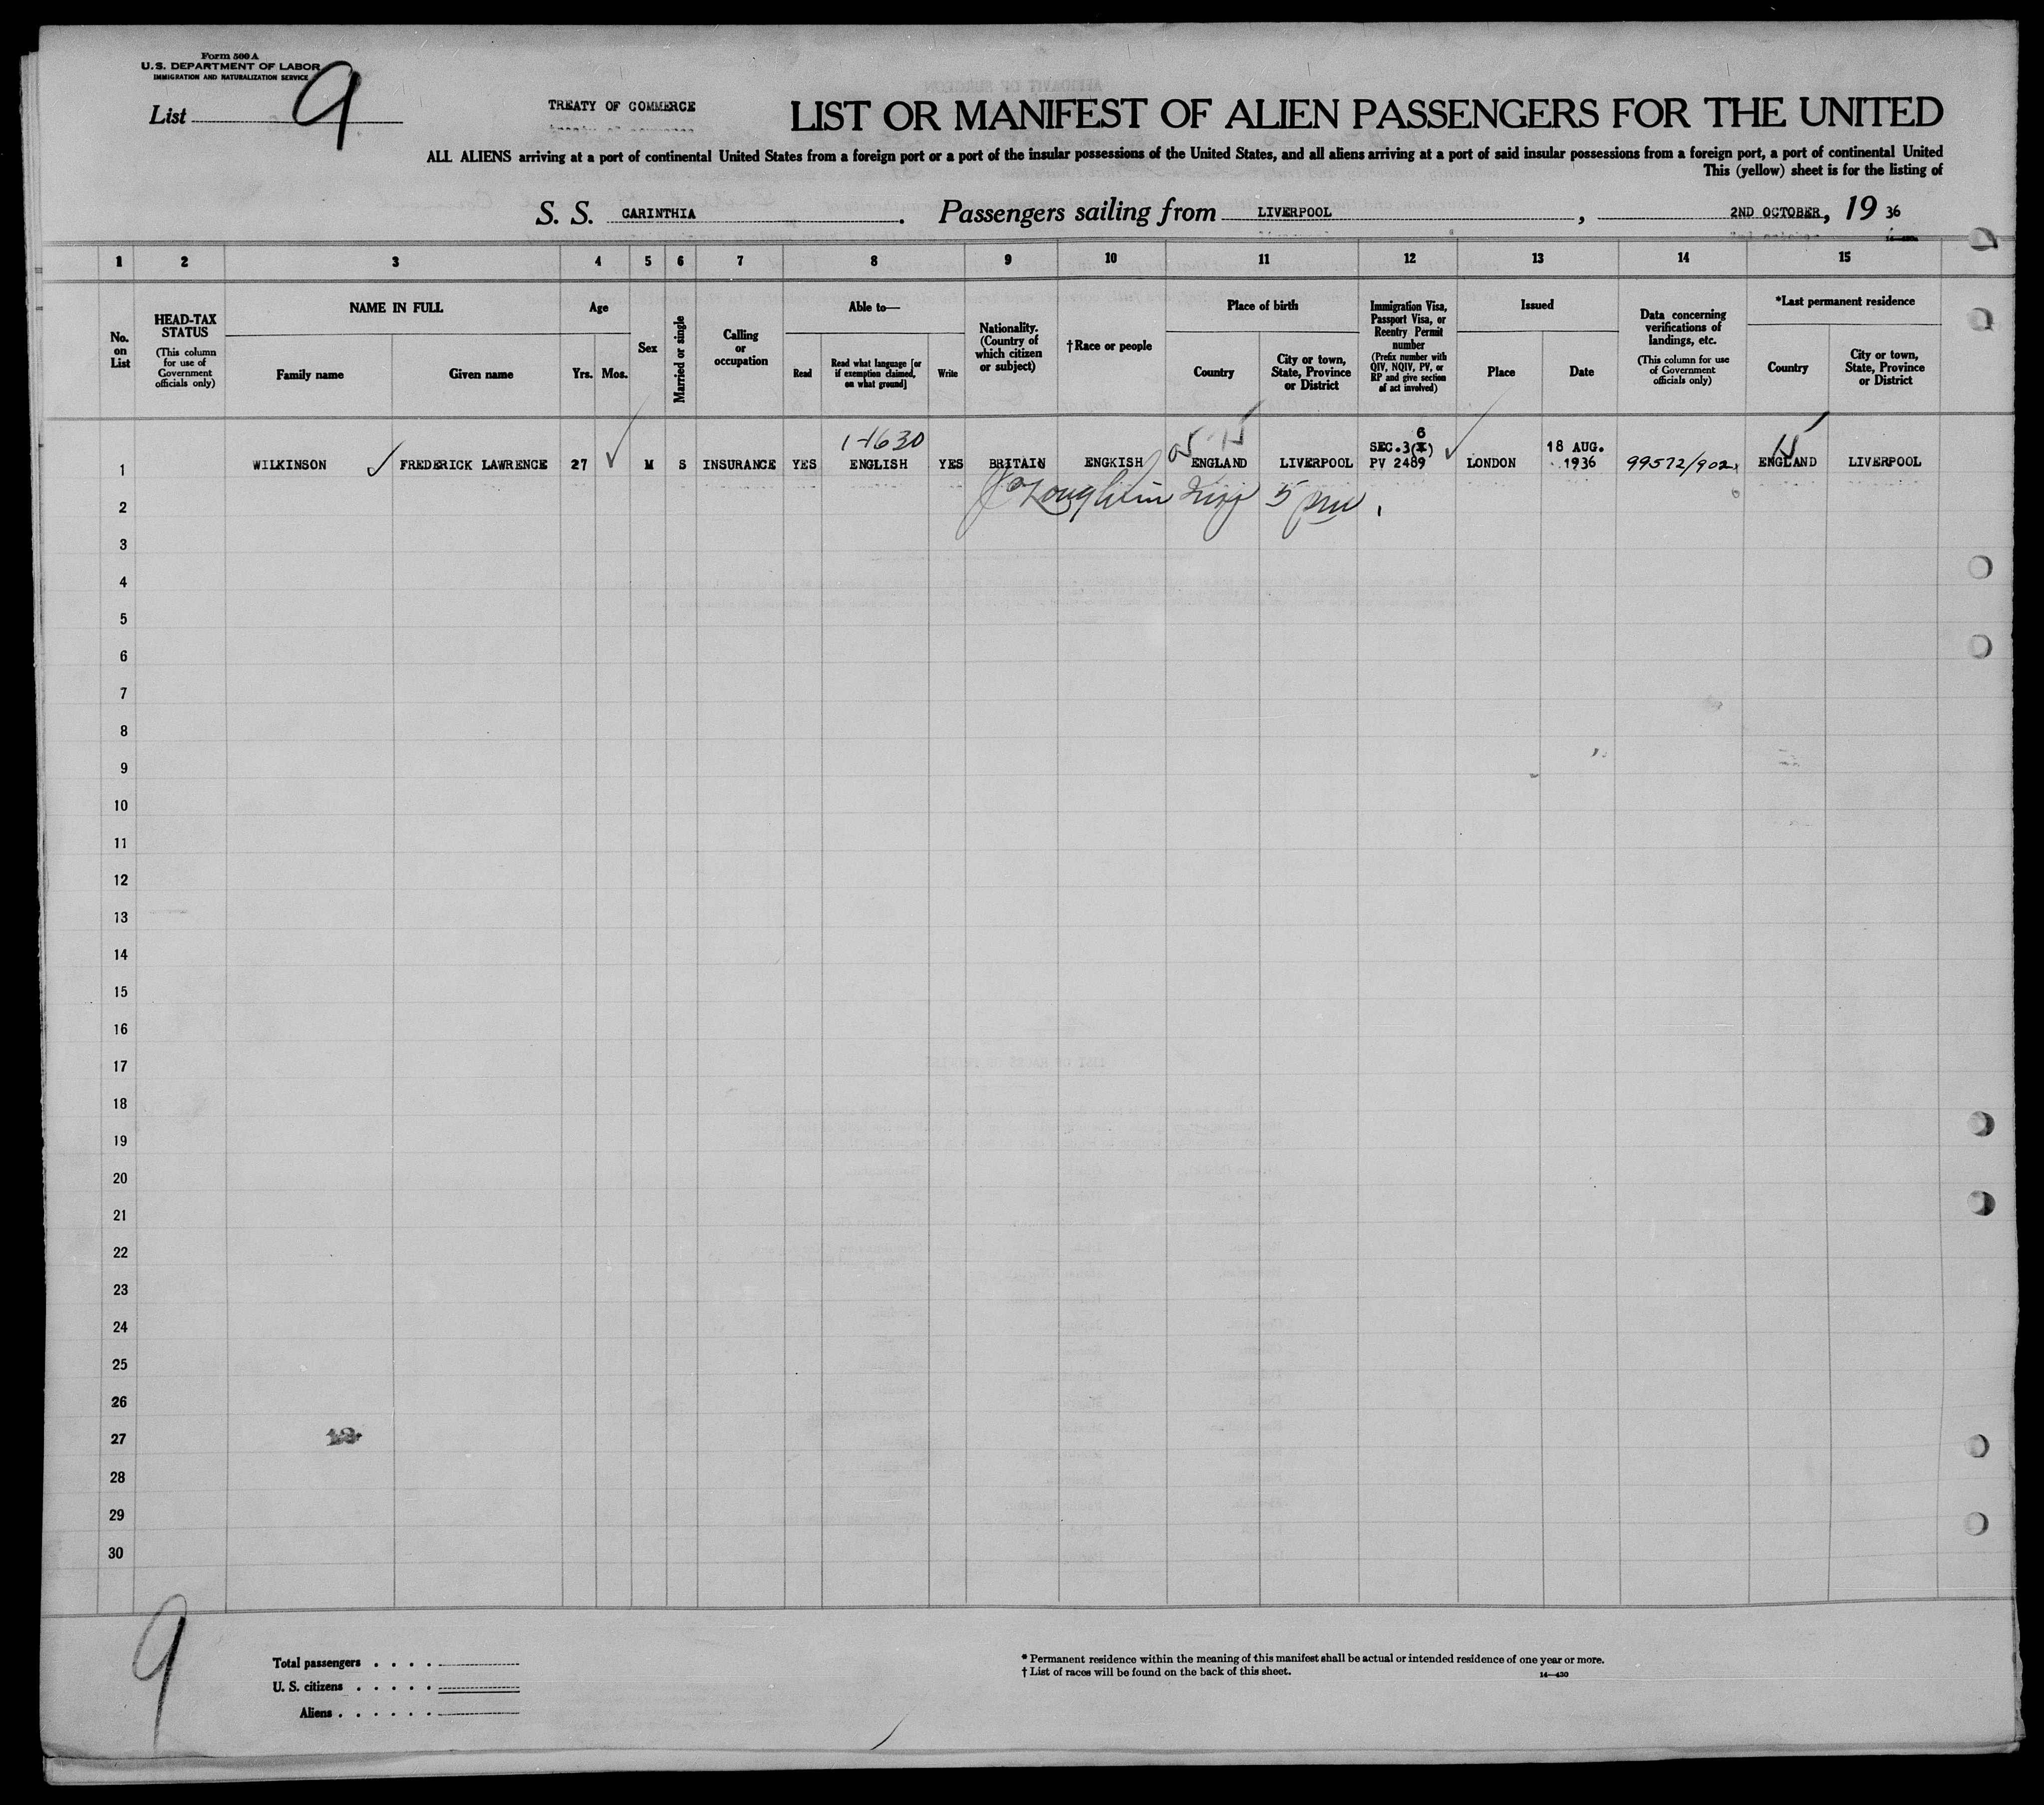 Form 500 A
U. S. DEPARTMENT OF LABOR
IMMIGRATION AND NATURALIZATION SERVICE
List 9
TREATY OF COMMERCE
LIST OR MANIFEST OF ALIEN PASSENGERS FOR THE UNITED
ALL ALIENS arriving at a port of continental United States from a foreign port or a port of the insular possessions of the United States, and all aliens arriving at a port of said insular possessions from a foreign port, a port of continental United
This (yellow) sheet is for the listing of
S. S. CARINTHIA. Passengers sailing from LIVERPOOL, 2ND OCTOBER, 19 36
1 2 3 4 5 6 7 8 9 10 11 12 13 14 15
No. on List
HEAD-TAX STATUS
(This column for use of Government officials only)
NAME IN FULL
Family name
Given name
Age
Yrs. Mos.
Sex
Married or single
Calling or occupation
Able to—
Read
Read what language [or if exemption claimed, on what ground]
Write
Nationality. (Country of which citizen or subject)
†Race or people
Place of birth
Country
City or town, State, Province or District
Immigration Visa, Passport Visa, or Reentry Permit number
(Prefix number with QIV, NQIV, PV, or RP and give section of act involved)
Issued
Place
Date
Data concerning verifications of landings, etc.
(This column for use of Government officials only)
*Last permanent residence
Country
City or town, State, Province or District
1-1630
6
SEC.3(X)
18 AUG.
1 WILKINSON FREDERICK LAWRENCE 27 M S INSURANCE YES ENGLISH YES BRITAIN ENGKISH ENGLAND LIVERPOOL PV 2489 LONDON 1936 99572/902 ENGLAND LIVERPOOL
2
3
4
5
6
7
8
9
10
11
12
13
14
15
16
17
18
19
20
21
22
23
24
25
26
27
28
29
30
9
Total passengers . . . .
U. S. citizens . . . . .
Aliens . . . . . .
* Permanent residence within the meaning of this manifest shall be actual or intended residence of one year or more.
† List of races will be found on the back of this sheet.
14—430